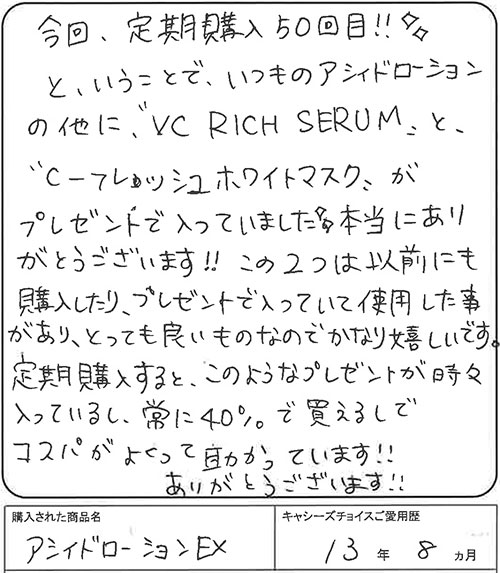 今回、定期購入50回目!!
と、いうことで、いつものアシィドローション
の他に、〝VC RICH SERUM〟と、
〝C-フレッシュホワイトマスク〟が
プレゼントで入っていました 本当にあり
がとうございます!! この2つは以前にも
購入したり、プレゼントで入っていて使用した事
があり、とっても良いものなのでかなり嬉しいです。
定期購入すると、このようなプレゼントが時々
入っているし、常に40%で買えるしで
コスパがよくって助かっています!!
ありがとうございます!!
購入された商品名
キャシーズチョイスご愛用歴
アシィドローションEX
13年8ヵ月